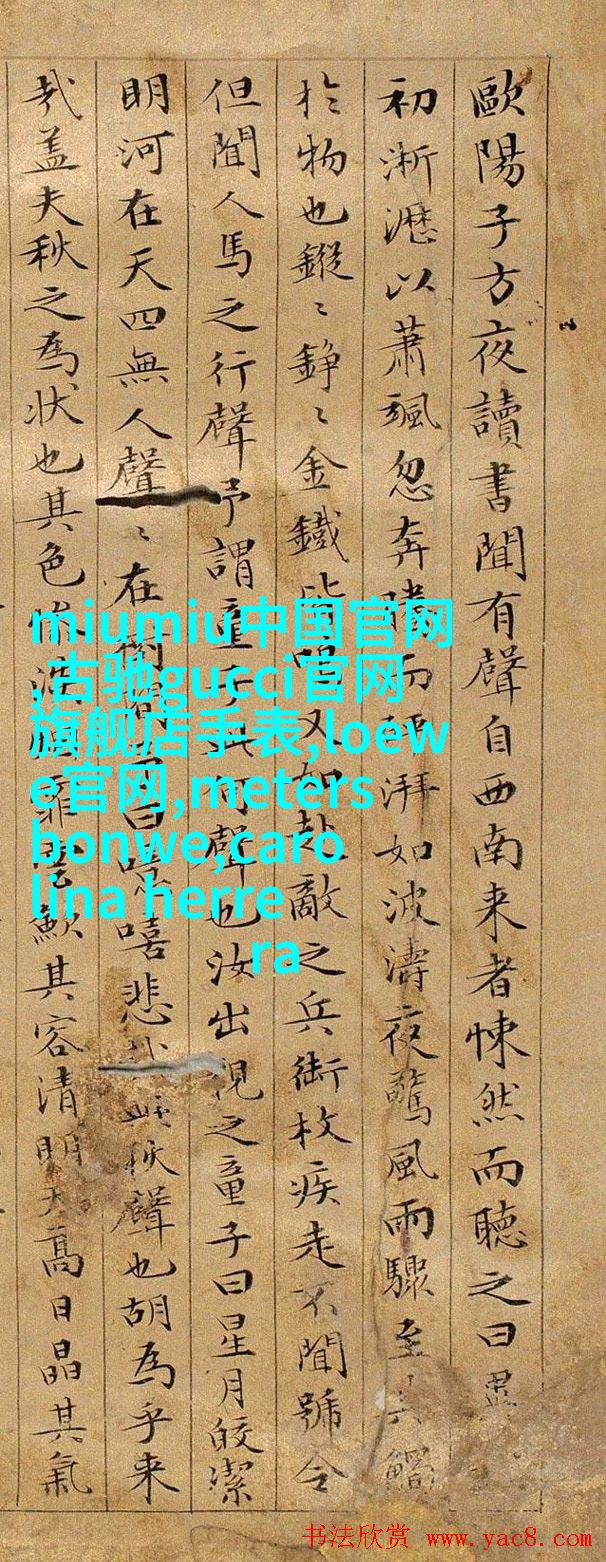 歐陽子方夜讀書聞有聲自西南来者悚然而聴之曰異
初淅瀝以蕭颯忽奔騰而砰湃如波濤夜驚風雨驟至其觸
扵物也鏦〻錚〻金鐵皆鳴又如赴敵之兵銜枚疾走不聞號令
但聞人馬之行聲予謂童子此何聲也汝出視之童子曰星月皎潔
明河在天四無人聲〻在樹間予曰噫嘻悲此秋聲也胡為乎来
哉盖夫秋之為状也其色惨淡烟霏雲歛其容清明天高日晶其氣
miumiu中国官网
,古驰gucci官网
旗舰店手表,loew
e官网,meters
bonwe,caro
lina herre
ra
书法欣赏 www.yac8.com